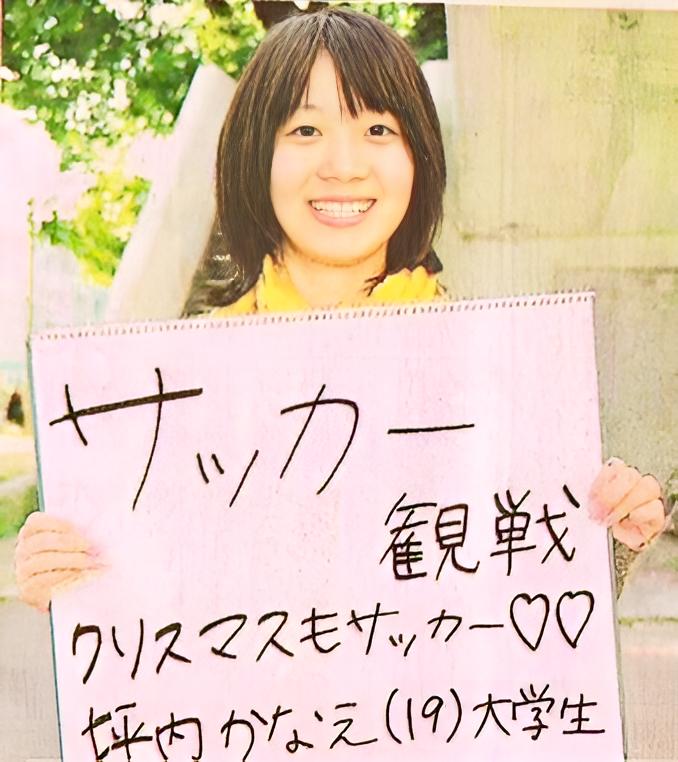 サッカー
観戦
クリスマスもサッカー♡♡
坪内かなえ(19)大学生